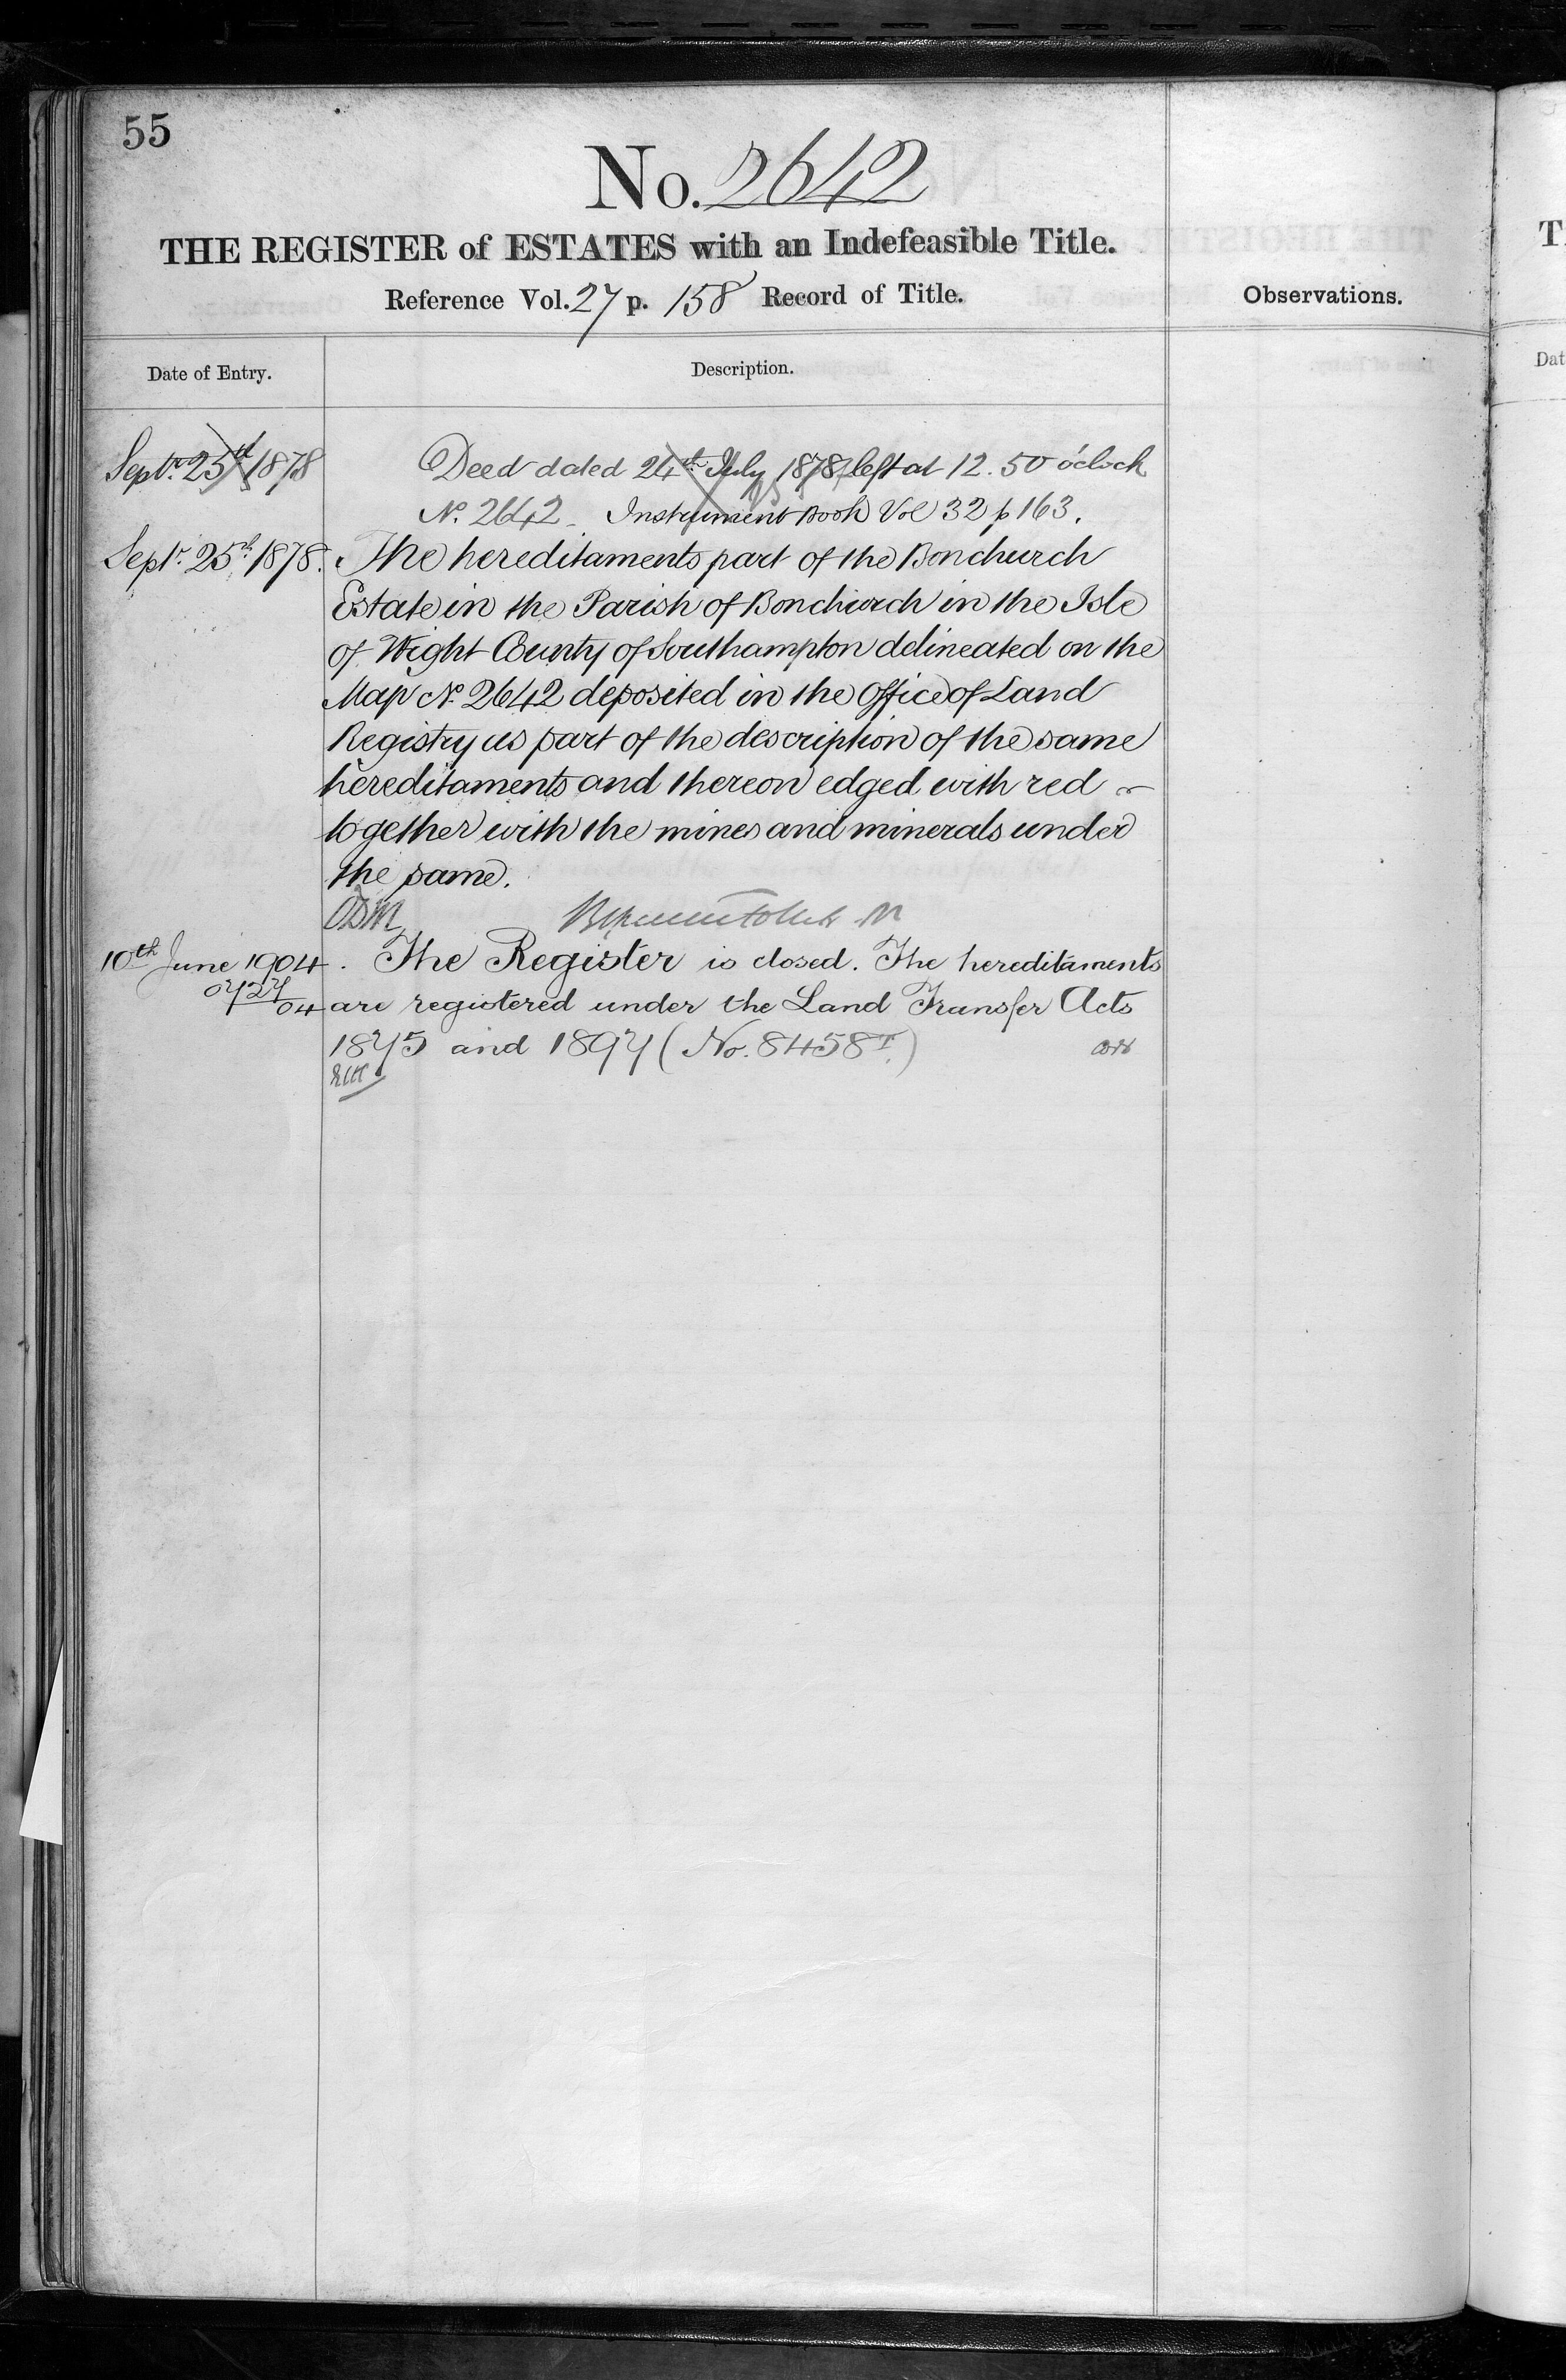 55
No. 2642
THE REGISTER of ESTATES with an Indefeasible Title.
Reference Vol. 27 p. 158 Record of Title.
Observations.
Date of Entry.
Description.
Septr. 25th 1878
Deed dated 24th July 1878 left at 12.50 o'clock
No. 2642 - Instrument Book Vol 32 p 163.
Septr. 25th 1878.
The hereditaments part of the Bonchurch
Estate in the Parish of Bonchurch in the Isle
of Wight County of Southampton delineated on the
Map No. 2642 deposited in the Office of Land
Registry as part of the description of the same
hereditaments and thereon edged with red
together with the mines and minerals under
the same.
10th June 1904.
The Register is closed. The hereditaments
0727/04
are registered under the Land Transfer Acts
1875 and 1897 (No. 8458 I.)
T
Dat